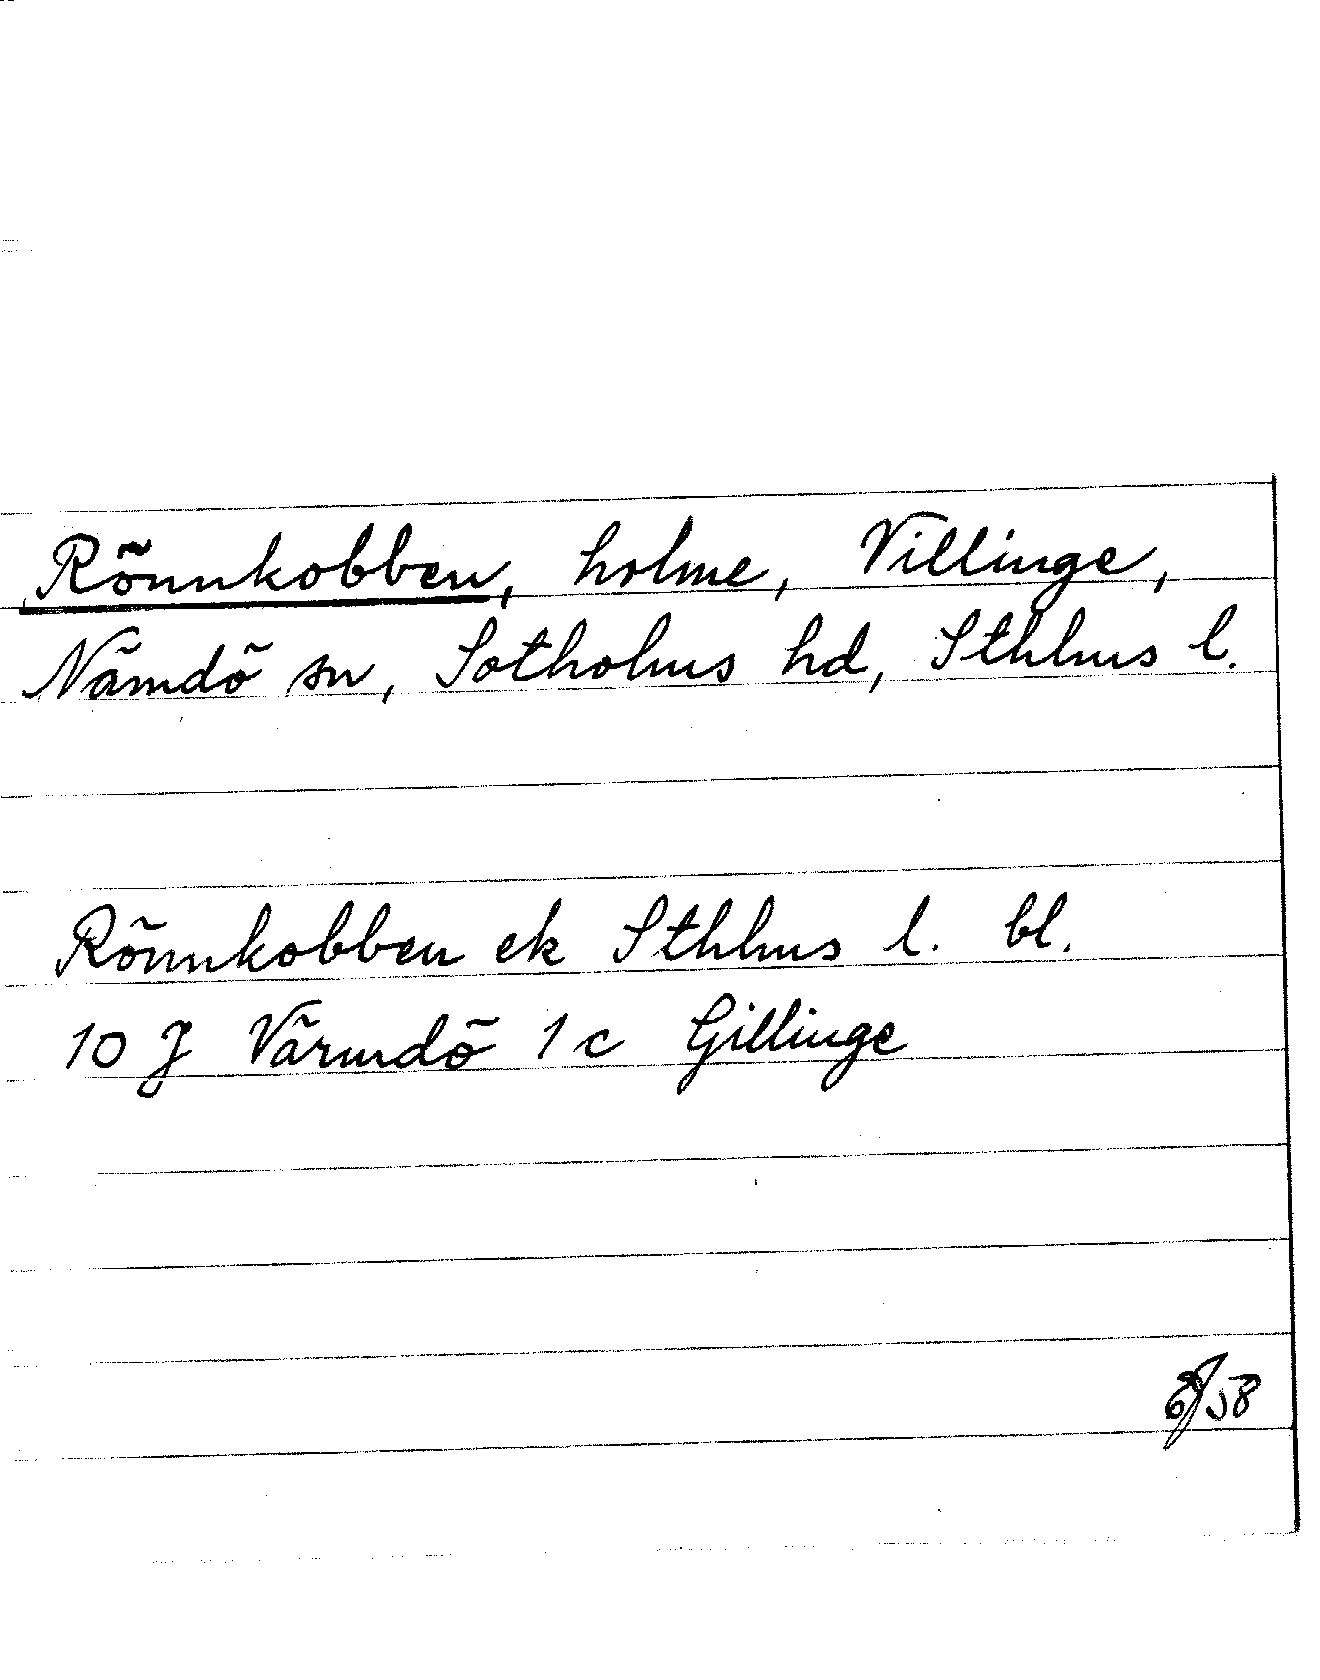 Rönnkobben, holme, Villinge,
Nämdö sn, Sotholms hd, Sthlms l.
Rönnkobben ek Sthlms l. bl.
10 J Värmdö 1 c Gillinge
58